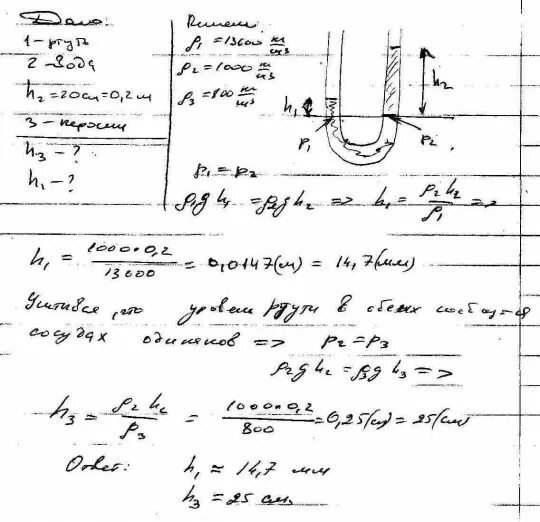 Дано:
1 - ртуть
2 - вода
h₂ = 20 см = 0,2 м
3 - керосин
h₃ - ?
h₁ - ?
Решение:
ρ₁ = 13600 кг/м³
ρ₂ = 1000 кг/м³
ρ₃ = 800 кг/м³
h₁
h₂
P₁
P₂
P₁ = P₂
ρ₁gh₁ = ρ₂gh₂ => h₁ = ρ₂h₂/ρ₁ =>
h₁ = 1000·0,2/13600 = 0,0147(м) = 14,7(мм)
что уровень ртути в обеих
сосудах одинаков => P₂ = P₃
ρ₂gh₂ = ρ₃gh₃ =>
h₃ = ρ₂h₂/ρ₃ = 1000·0,2/800 = 0,25(м) = 25(см)
Ответ: h₁ ≈ 14,7 мм
h₃ = 25 см.